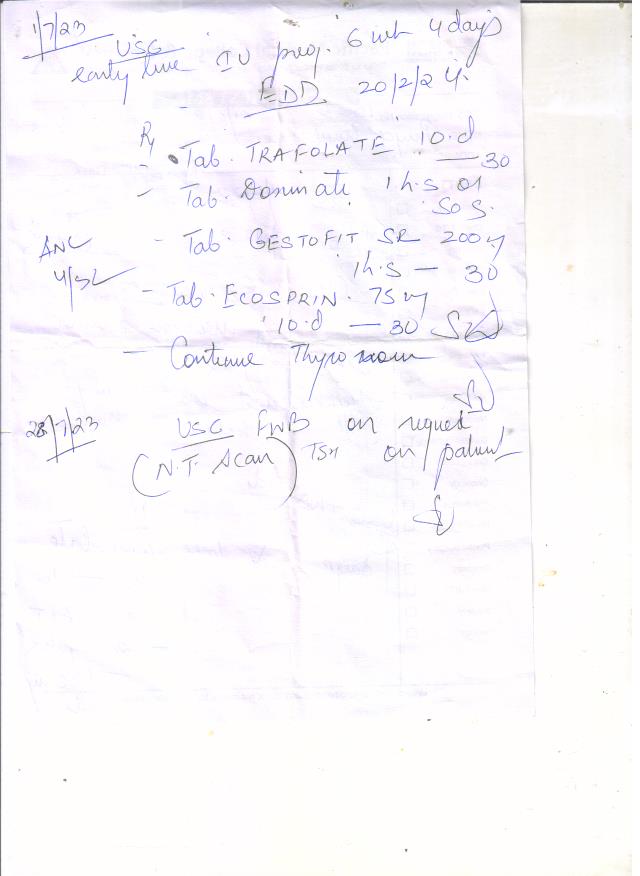 1/7/23
USG
early live IU preg. 6 wk 4 days
EDD 20/2/24.
Rx
- Tab. TRAFOLATE 1 O.d
— 30
- Tab. Doninate 1 h.s or
SOS.
ANC
- Tab. GESTOFIT SR 200mg
1 h.s — 30
- Tab. ECOSPRIN. 75 mg
1 O.d — 30
- Continue Thyronorm
28/7/23 USG FWB on request
(N.T. Scan) TSH on patient